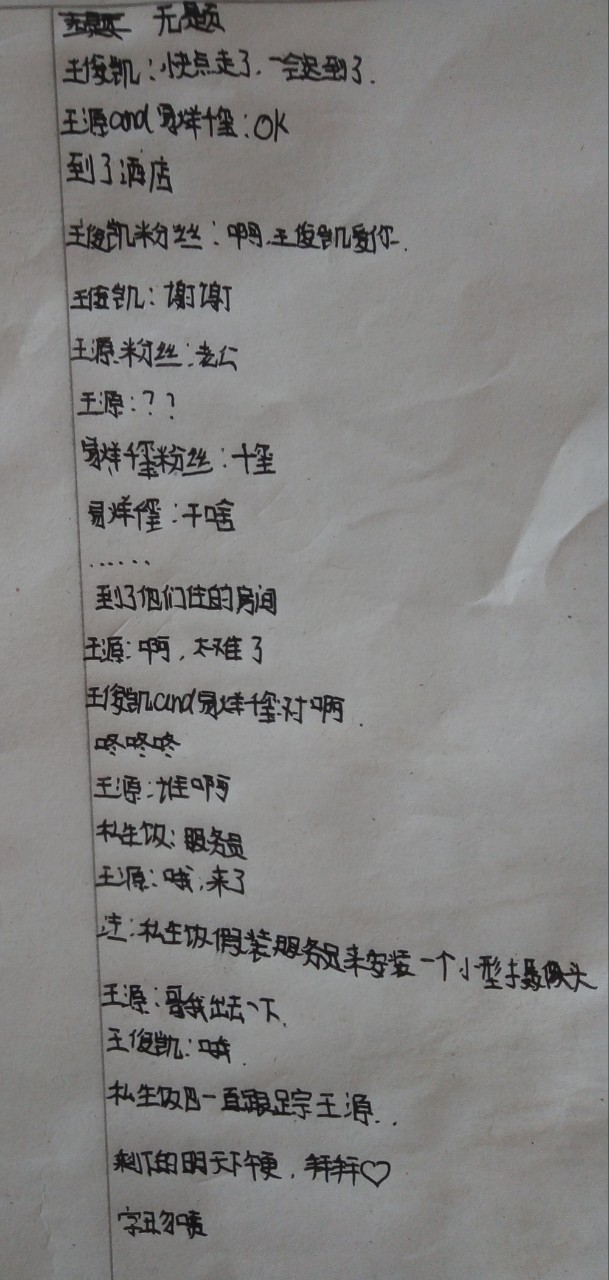 无题
王俊凯：快点走了，一会迟到了．
王源and易烊千玺：OK
到了酒店
王俊凯粉丝：啊，王俊凯爱你．
王俊凯：谢谢
王源粉丝：老公
王源：？？
易烊千玺粉丝：千玺
易烊千玺：干啥
……
到了他们住的房间
王源：啊，太难了
王俊凯and易烊千玺：对啊．
咚咚咚
王源：谁啊
私生饭：服务员
王源：哦，来了
注：私生饭假装服务员来安装一个小型摄像头
王源：哥我出去一下．
王俊凯：哦．
私生饭四一直跟踪王源．．
剩下的明天下午更，拜拜♡
字丑勿喷